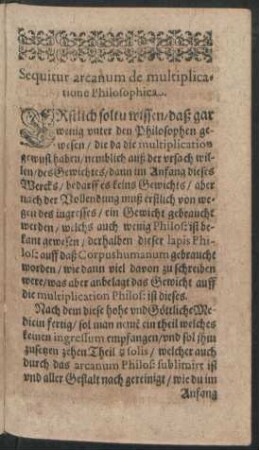 Sequitur arcanum de multiplica-
tione Philosophica.
ERstlich soltu wissen/daß gar
wenig vnter den Philosophen ge-
wesen/die da die multiplication
gewust haben/nemblich auß der vrsach wil-
len/des Gewichtes/dann im Anfang dieses
Wercks/bedarff es keins Gewichts/aber
nach der Vollendung muß erstlich von we-
gen des ingresses/ein Gewicht gebraucht
werden/welchs auch wenig Philos: ist be-
kant gewesen/derhalben dieser lapis Phi-
los: auff daß Corpus humanum gebraucht
worden/wie dann viel davon zu schreiben
were/was aber anbelagt das Gewicht auff
die multiplication Philos: ist dieses.
Nach dem diese hohe vnd Göttliche Me-
dicin fertig/sol man neme ein theil welches
keinen ingressum empfangen/vnd sol ihm
zusetzen zehen Theil ☿ solis/welcher auch
durch das arcanum Philos: sublimirt ist
vnd aller Gestalt nach gereinigt/wie du im
Anfang